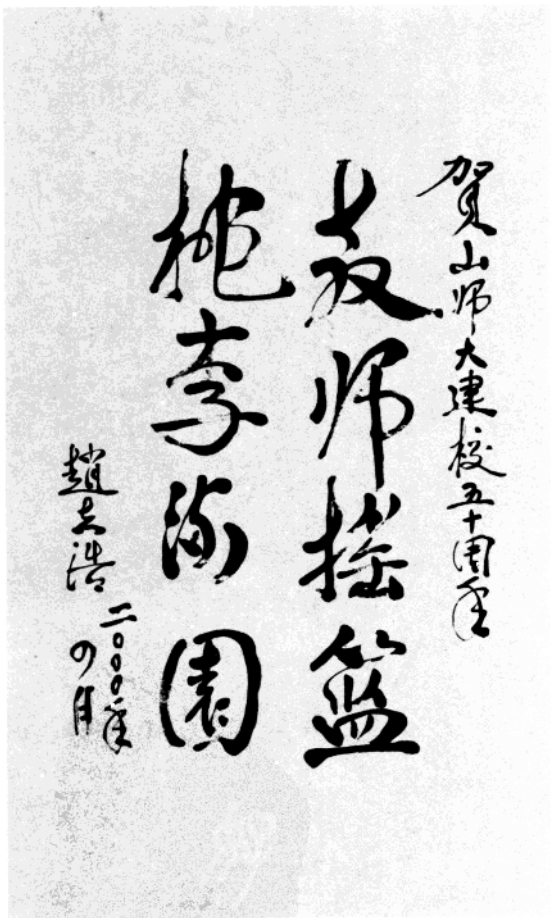 賀山师大建校五十周年
教师摇篮
桃李满園
趙志浩
二〇〇〇年
四月